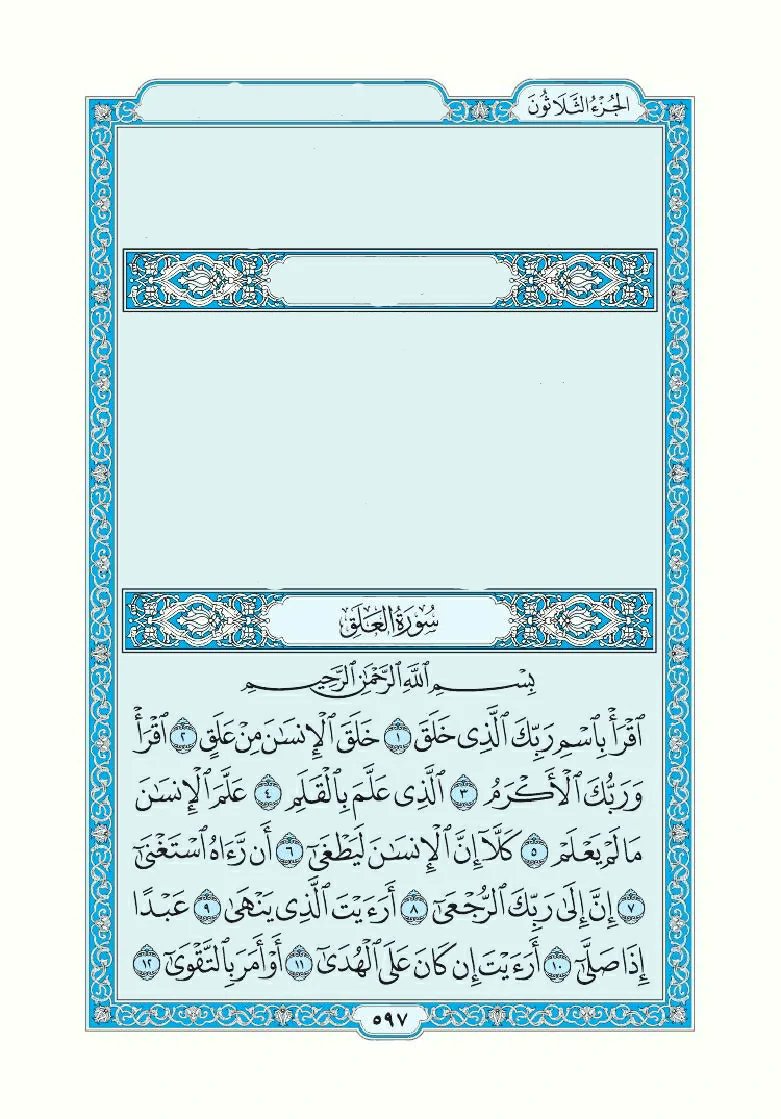 الجُزْءُ الثَّلَاثُونَ
سُورَةُ العَلَقِ
بِسْمِ ٱللَّهِ ٱلرَّحْمَٰنِ ٱلرَّحِيمِ
ٱقْرَأْ بِٱسْمِ رَبِّكَ ٱلَّذِى خَلَقَ ١ خَلَقَ ٱلْإِنسَٰنَ مِنْ عَلَقٍ ٢ ٱقْرَأْ
وَرَبُّكَ ٱلْأَكْرَمُ ٣ ٱلَّذِى عَلَّمَ بِٱلْقَلَمِ ٤ عَلَّمَ ٱلْإِنسَٰنَ
مَا لَمْ يَعْلَمْ ٥ كَلَّآ إِنَّ ٱلْإِنسَٰنَ لَيَطْغَىٰٓ ٦ أَن رَّءَاهُ ٱسْتَغْنَىٰٓ
٧ إِنَّ إِلَىٰ رَبِّكَ ٱلرُّجْعَىٰٓ ٨ أَرَءَيْتَ ٱلَّذِى يَنْهَىٰ ٩ عَبْدًا
إِذَا صَلَّىٰٓ ١٠ أَرَءَيْتَ إِن كَانَ عَلَى ٱلْهُدَىٰٓ ١١ أَوْ أَمَرَ بِٱلتَّقْوَىٰٓ ١٢
٥٩٧